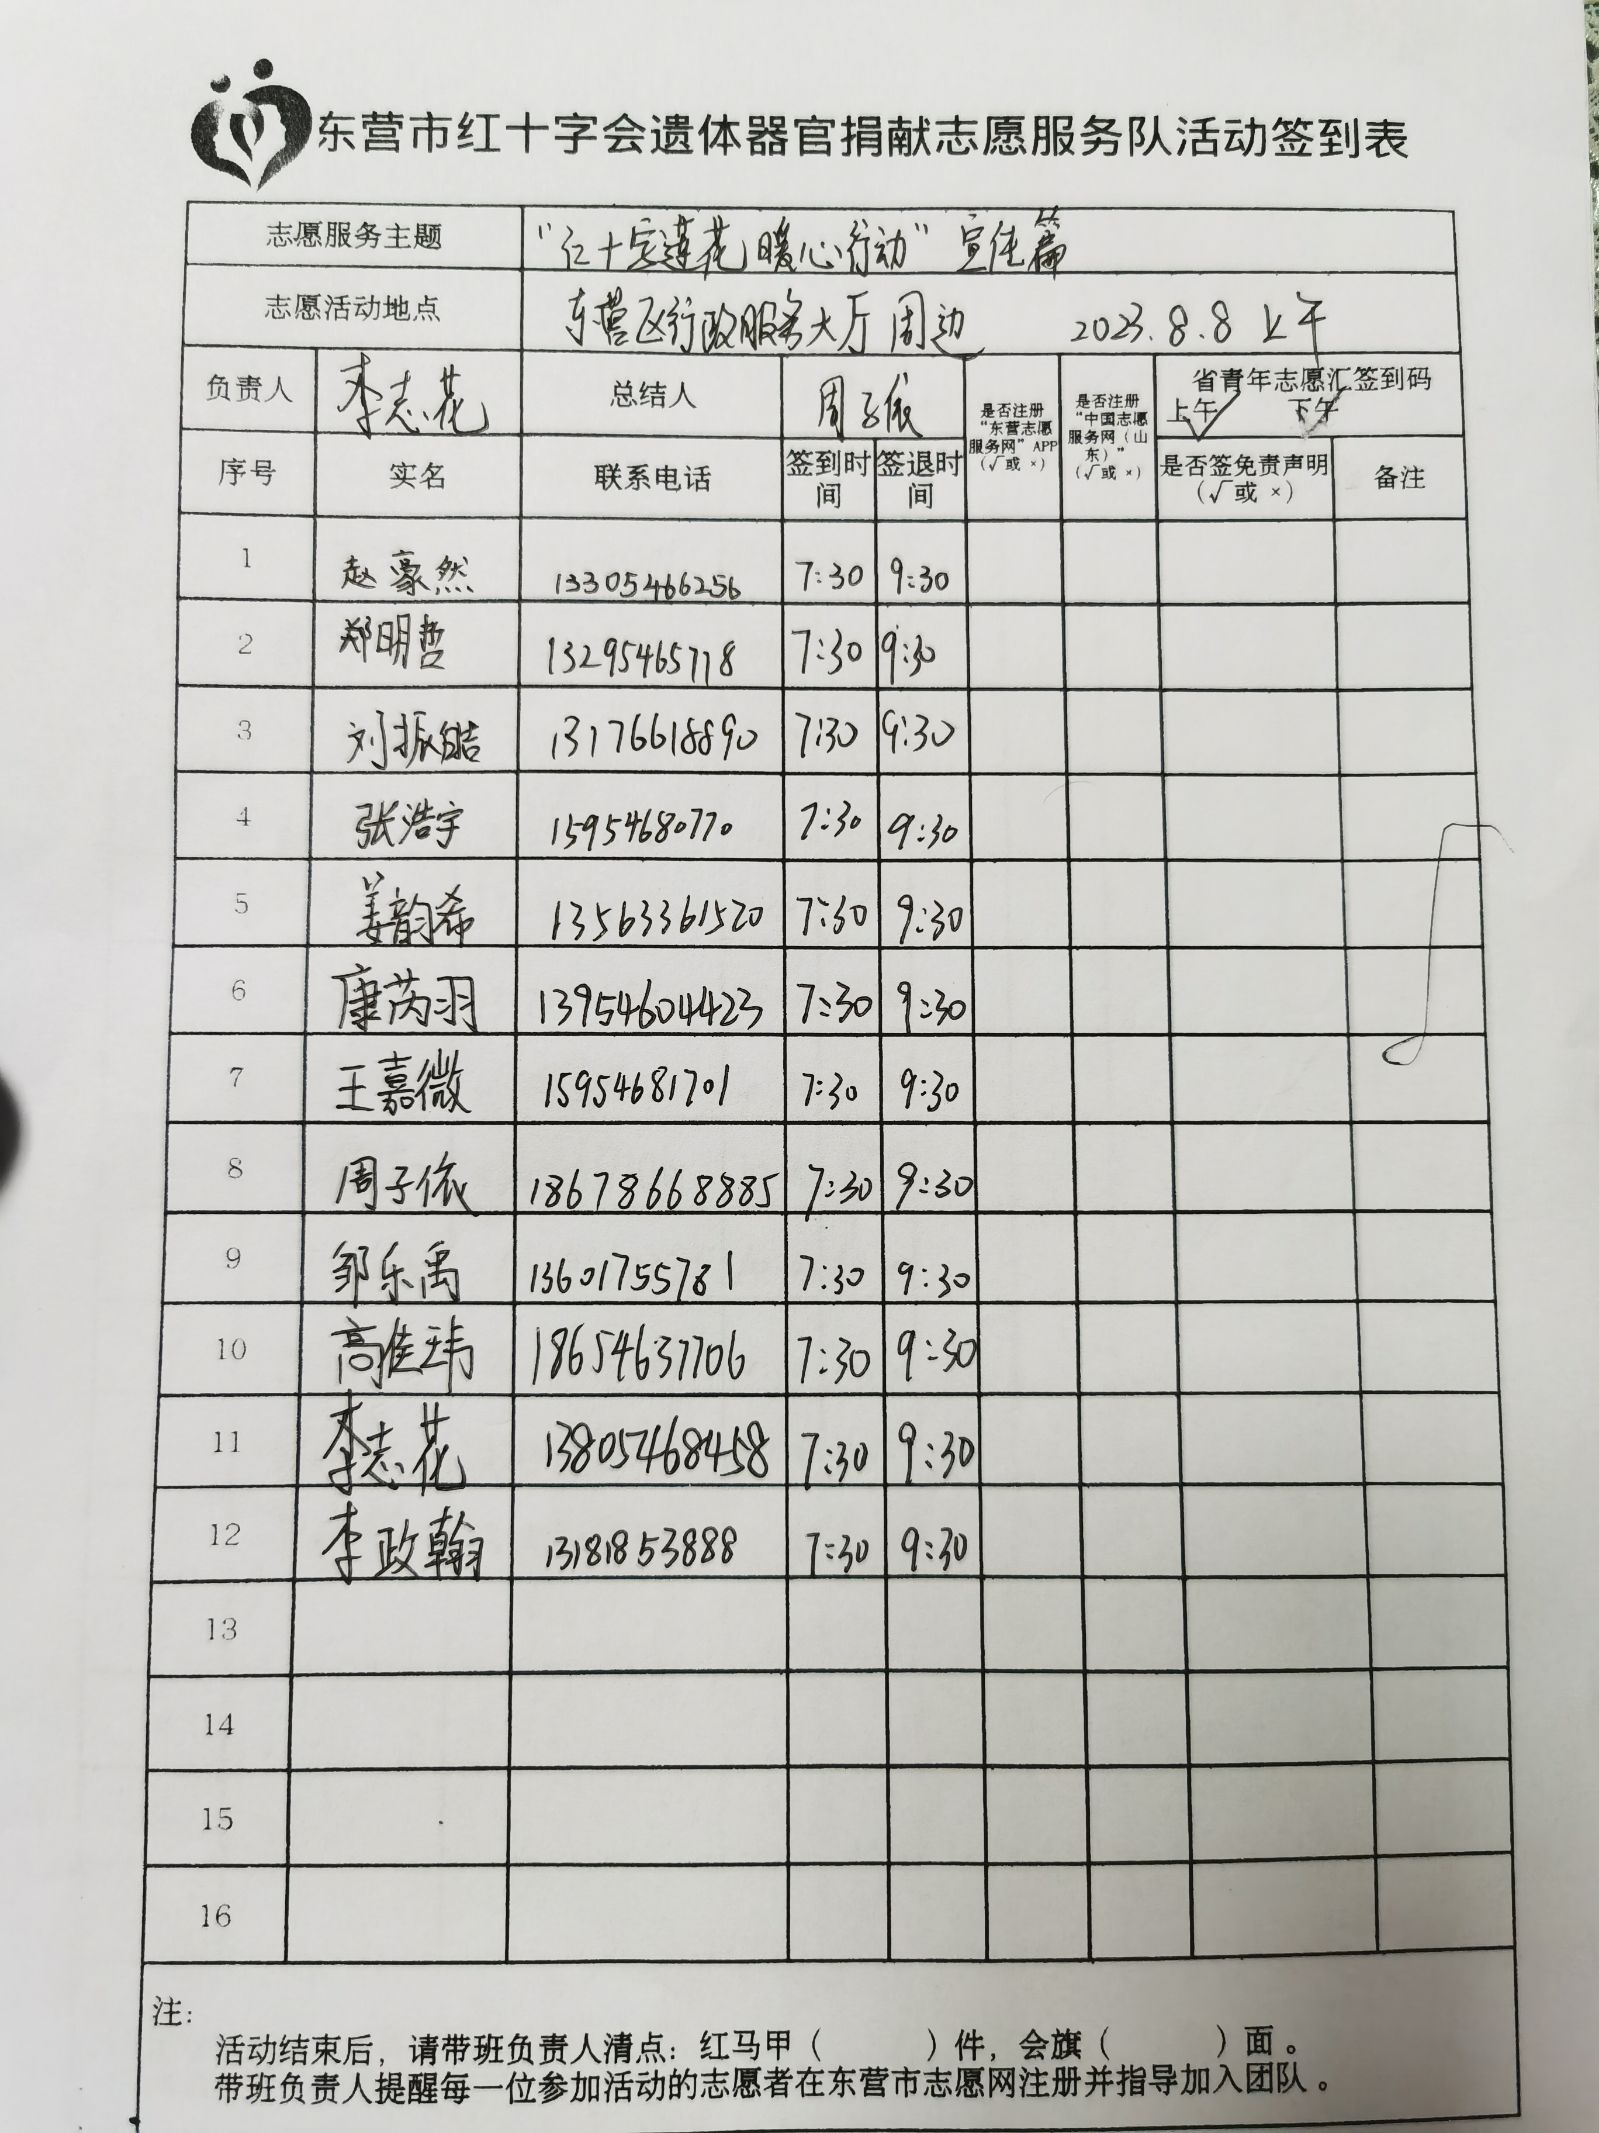 东营市红十字会遗体器官捐献志愿服务队活动签到表
志愿服务主题 “红十字莲花暖心行动”宣传篇
志愿活动地点 东营区行政服务大厅周边 2023.8.8 上午
负责人 李志花 总结人 周子依 是否注册“东营志愿服务网”APP（√或 ×） 是否注册“中国志愿服务网（山东）”（√或 ×） 省青年志愿汇签到码 上午 下午
序号 实名 联系电话 签到时间 签退时间 是否签免责声明（√或 ×） 备注
1 赵豪然 13305466256 7:30 9:30
2 郑明哲 13295465718 7:30 9:30
3 刘振皓 13176618890 7:30 9:30
4 张浩宇 15954680770 7:30 9:30
5 姜韵希 13563361520 7:30 9:30
6 康芮羽 13954604423 7:30 9:30
7 王嘉微 15954681701 7:30 9:30
8 周子依 18678668885 7:30 9:30
9 邹乐禹 13601755781 7:30 9:30
10 高佳玮 18654637706 7:30 9:30
11 李志花 13805468458 7:30 9:30
12 李政翰 13181853888 7:30 9:30
13
14
15
16
注：
活动结束后，请带班负责人清点：红马甲（ ）件，会旗（ ）面。
带班负责人提醒每一位参加活动的志愿者在东营市志愿网注册并指导加入团队。